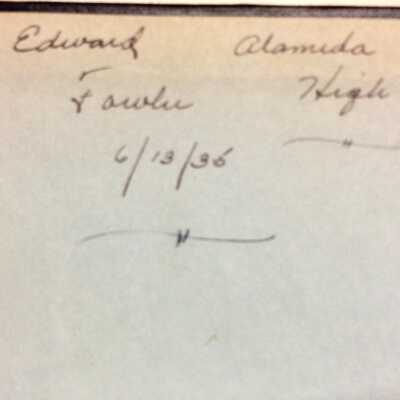 Edward
Fowler
6/13/36
"
Alameda
High
"